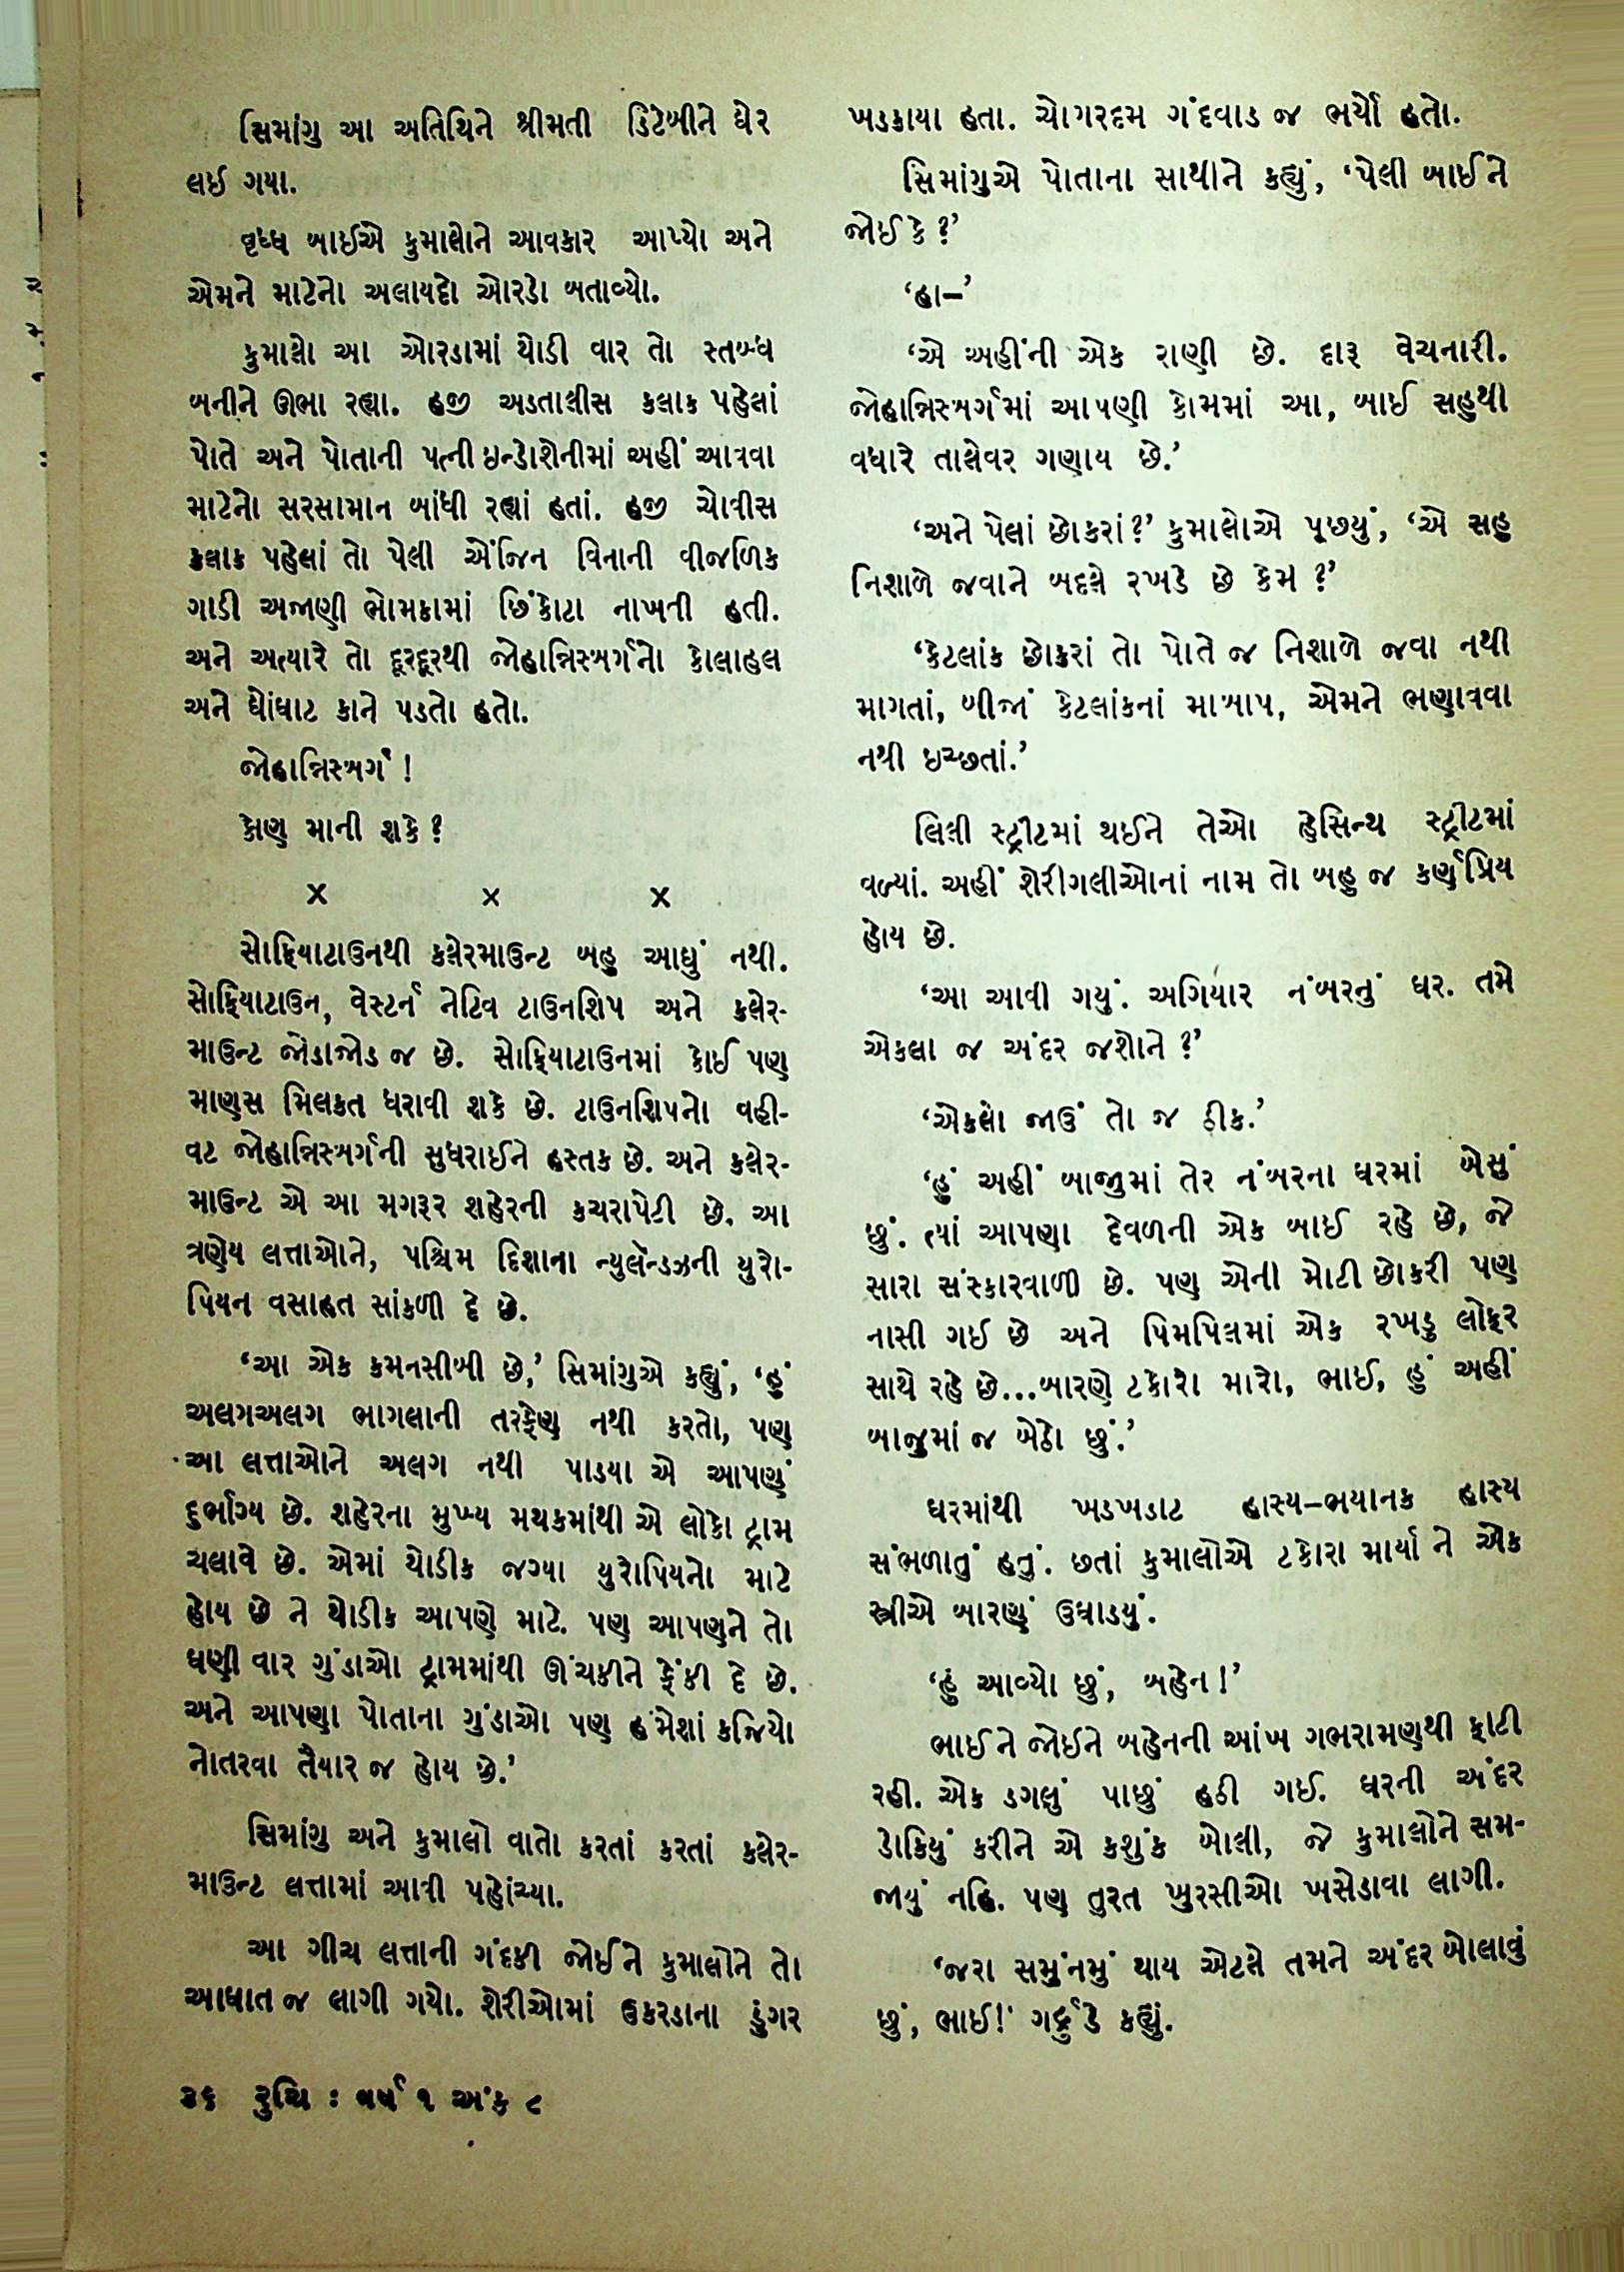 સિમાંગુ આ અતિથિને શ્રીમતી ડિટેબીને ઘેર
લઈ ગયા.
વૃધ્ધ બાઈએ કુમાલોને આવકાર આપ્યો અને
એમને માટેનો અલાયદો ઓરડો બતાવ્યો.
કુમાલો આ ઓરડામાં થોડી વાર તો સ્તબ્ધ
બનીને ઊભા રહ્યા. હજી અડતાલીસ કલાક પહેલાં
પોતે અને પોતાની પત્ની ઇન્ડોશેનીમાં અહીં આવવા
માટેનો સરસામાન બાંધી રહ્યાં હતાં. હજી ચોવીસ
કલાક પહેલાં તો પેલી એંજિન વિનાની વીજળિક
ગાડી અજાણી ભોમકામાં છિંકોટા નાખતી હતી.
અને અત્યારે તો દૂરદૂરથી જોહાન્નિસબર્ગનો કોલાહલ
અને ઘોંઘાટ કાને પડતો હતો.
જોહાન્નિસબર્ગ !
કોણ માની શકે ?
x x x
સોફિયાટાઉનથી કલેરમાઉન્ટ બહુ આઘું નથી.
સોફિયાટાઉન, વેસ્ટર્ન નેટિવ ટાઉનશિપ અને કલેર-
માઉન્ટ જોડાજોડ જ છે. સોફિયાટાઉનમાં કોઈ પણ
માણસ મિલકત ધરાવી શકે છે. ટાઉનશિપનો વહી-
વટ જોહાન્નિસબર્ગની સુધરાઈને હસ્તક છે. અને કલેર-
માઉન્ટ એ આ મગરૂર શહેરની કચરાપેટી છે. આ
ત્રણેય લત્તાઓને, પશ્ચિમ દિશાના ન્યુલેન્ડઝની યુરો-
પિયન વસાહત સાંકળી દે છે.
‘આ એક કમનસીબી છે,’ સિમાંગુએ કહ્યું, ‘હું
અલગઅલગ ભાગલાની તરફેણ નથી કરતો, પણ
આ લત્તાઓને અલગ નથી પાડયા એ આપણું
દુર્ભાગ્ય છે. શહેરના મુખ્ય મથકમાંથી એ લોકો ટ્રામ
ચલાવે છે. એમાં થોડીક જગ્યા યુરોપિયનો માટે
હોય છે ને થોડીક આપણે માટે. પણ આપણને તો
ઘણી વાર ગુંડાઓ ટ્રામમાંથી ઊંચકીને ફેંકી દે છે.
અને આપણા પોતાના ગુંડાઓ પણ હંમેશાં કજિયો
નોતરવા તૈયાર જ હોય છે.’
સિમાંગુ અને કુમાલો વાતો કરતાં કરતાં કલેર-
માઉન્ટ લત્તામાં આવી પહોંચ્યા.
આ ગીચ લત્તાની ગંદકી જોઈને કુમાલોને તો
આઘાત જ લાગી ગયો. શેરીઓમાં ઉકરડાના ડુંગર
ખડકાયા હતા. ચોગરદમ ગંદવાડ જ ભર્યો હતો.
સિમાંગુએ પોતાના સાથીને કહ્યું, ‘પેલી બાઈને
જોઈ કે ?’
‘હા—’
‘એ અહીંની એક રાણી છે. દારૂ વેચનારી.
જોહાન્નિસબર્ગમાં આપણી કોમમાં આ, બાઈ સહુથી
વધારે તાલેવર ગણાય છે.’
‘અને પેલાં છોકરાં ?’ કુમાલોએ પૂછયું, ‘એ સહુ
નિશાળે જવાને બદલે રખડે છે કેમ ?’
‘કેટલાંક છોકરાં તો પોતે જ નિશાળે જવા નથી
માગતાં, બીજાં કેટલાંકનાં માબાપ, એમને ભણાવવા
નથી ઇચ્છતાં.’
લિલી સ્ટ્રીટમાં થઈને તેઓ હેસિન્થ સ્ટ્રીટમાં
વળ્યાં. અહીં શેરીગલીઓનાં નામ તો બહુ જ કર્ણપ્રિય
હોય છે.
‘આ આવી ગયું. અગિયાર નંબરનું ઘર. તમે
એકલા જ અંદર જશોને ?’
‘એકલો જાઉં તો જ ઠીક.’
‘હું અહીં બાજુમાં તેર નંબરના ઘરમાં બેસું
છું. ત્યાં આપણા દેવળની એક બાઈ રહે છે, જે
સારા સંસ્કારવાળી છે. પણ એની મોટી છોકરી પણ
નાસી ગઈ છે અને પિમપિલમાં એક રખડુ લોફર
સાથે રહે છે...બારણે ટકોરો મારો, ભાઈ, હું અહીં
બાજુમાં જ બેઠો છું.’
ઘરમાંથી ખડખડાટ હાસ્ય–ભયાનક હાસ્ય
સંભળાતું હતું. છતાં કુમાલોએ ટકોરા માર્યા ને એક
સ્ત્રીએ બારણું ઉઘાડયું.
‘હું આવ્યો છું, બહેન !’
ભાઈને જોઈને બહેનની આંખ ગભરામણથી ફાટી
રહી. એક ડગલું પાછું હઠી ગઈ. ઘરની અંદર
ડોકિયું કરીને એ કશુંક બોલી, જે કુમાલોને સમ-
જાયું નહિ. પણ તુરત ખુરસીઓ ખસેડાવા લાગી.
‘જરા સમુંનમું થાય એટલે તમને અંદર બોલાવું
છું, ભાઈ !’ ગર્ટ્રુડે કહ્યું.
૩૬ રુચિ : વર્ષ ૧ અંક ૮